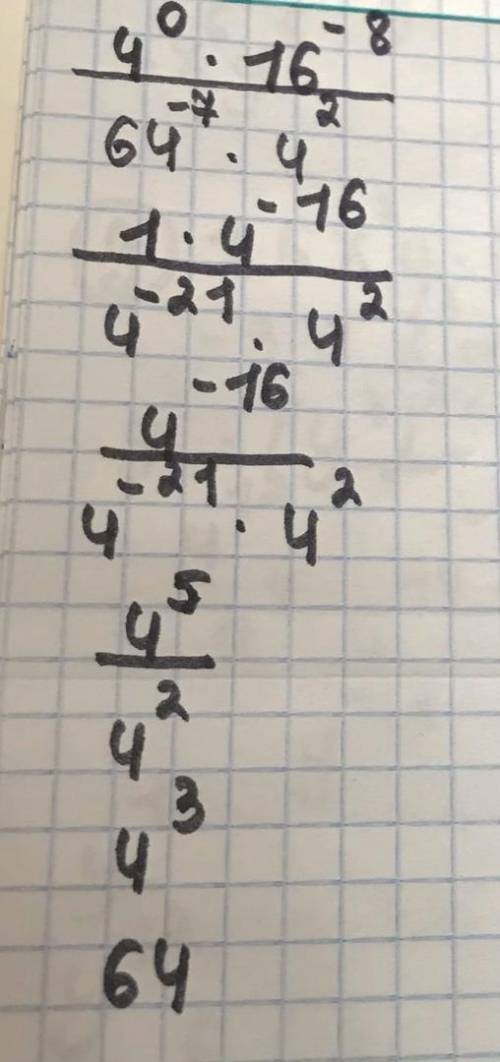 4⁰ · 16⁻⁸
64⁻⁷ · 4²
1 · 4⁻¹⁶
4⁻²¹ · 4²
4⁻¹⁶
4⁻²¹ · 4²
4⁵
4²
4³
64